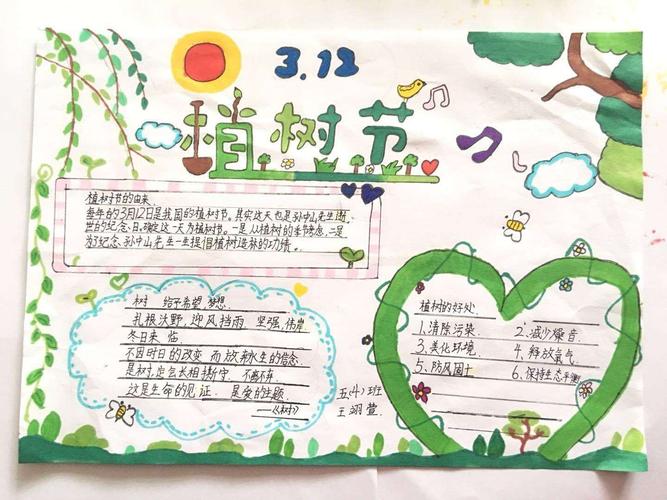 3.12
植树节
植树节的由来
每年的3月12日是我国的植树节。其实这天也是孙中山先生逝
世的纪念日。确定这一天为植树节。一是从植树的季节考虑,二是
为了纪念孙中山先生一生提倡植树造林的功绩。
树 给予希望 梦想
扎根沃野,迎风挡雨 坚强,伟岸
冬日来临
不因时日的改变 而放弃人生的信念
是树 定会长相厮守 不离不弃
这是生命的见证 是爱的主题
——《树》
五(4)班
王翊萱
植树的好处
1.清除污染. 2.减少噪音
3.美化环境. 4.释放氧气
5.防风固土 6.保持生态平衡